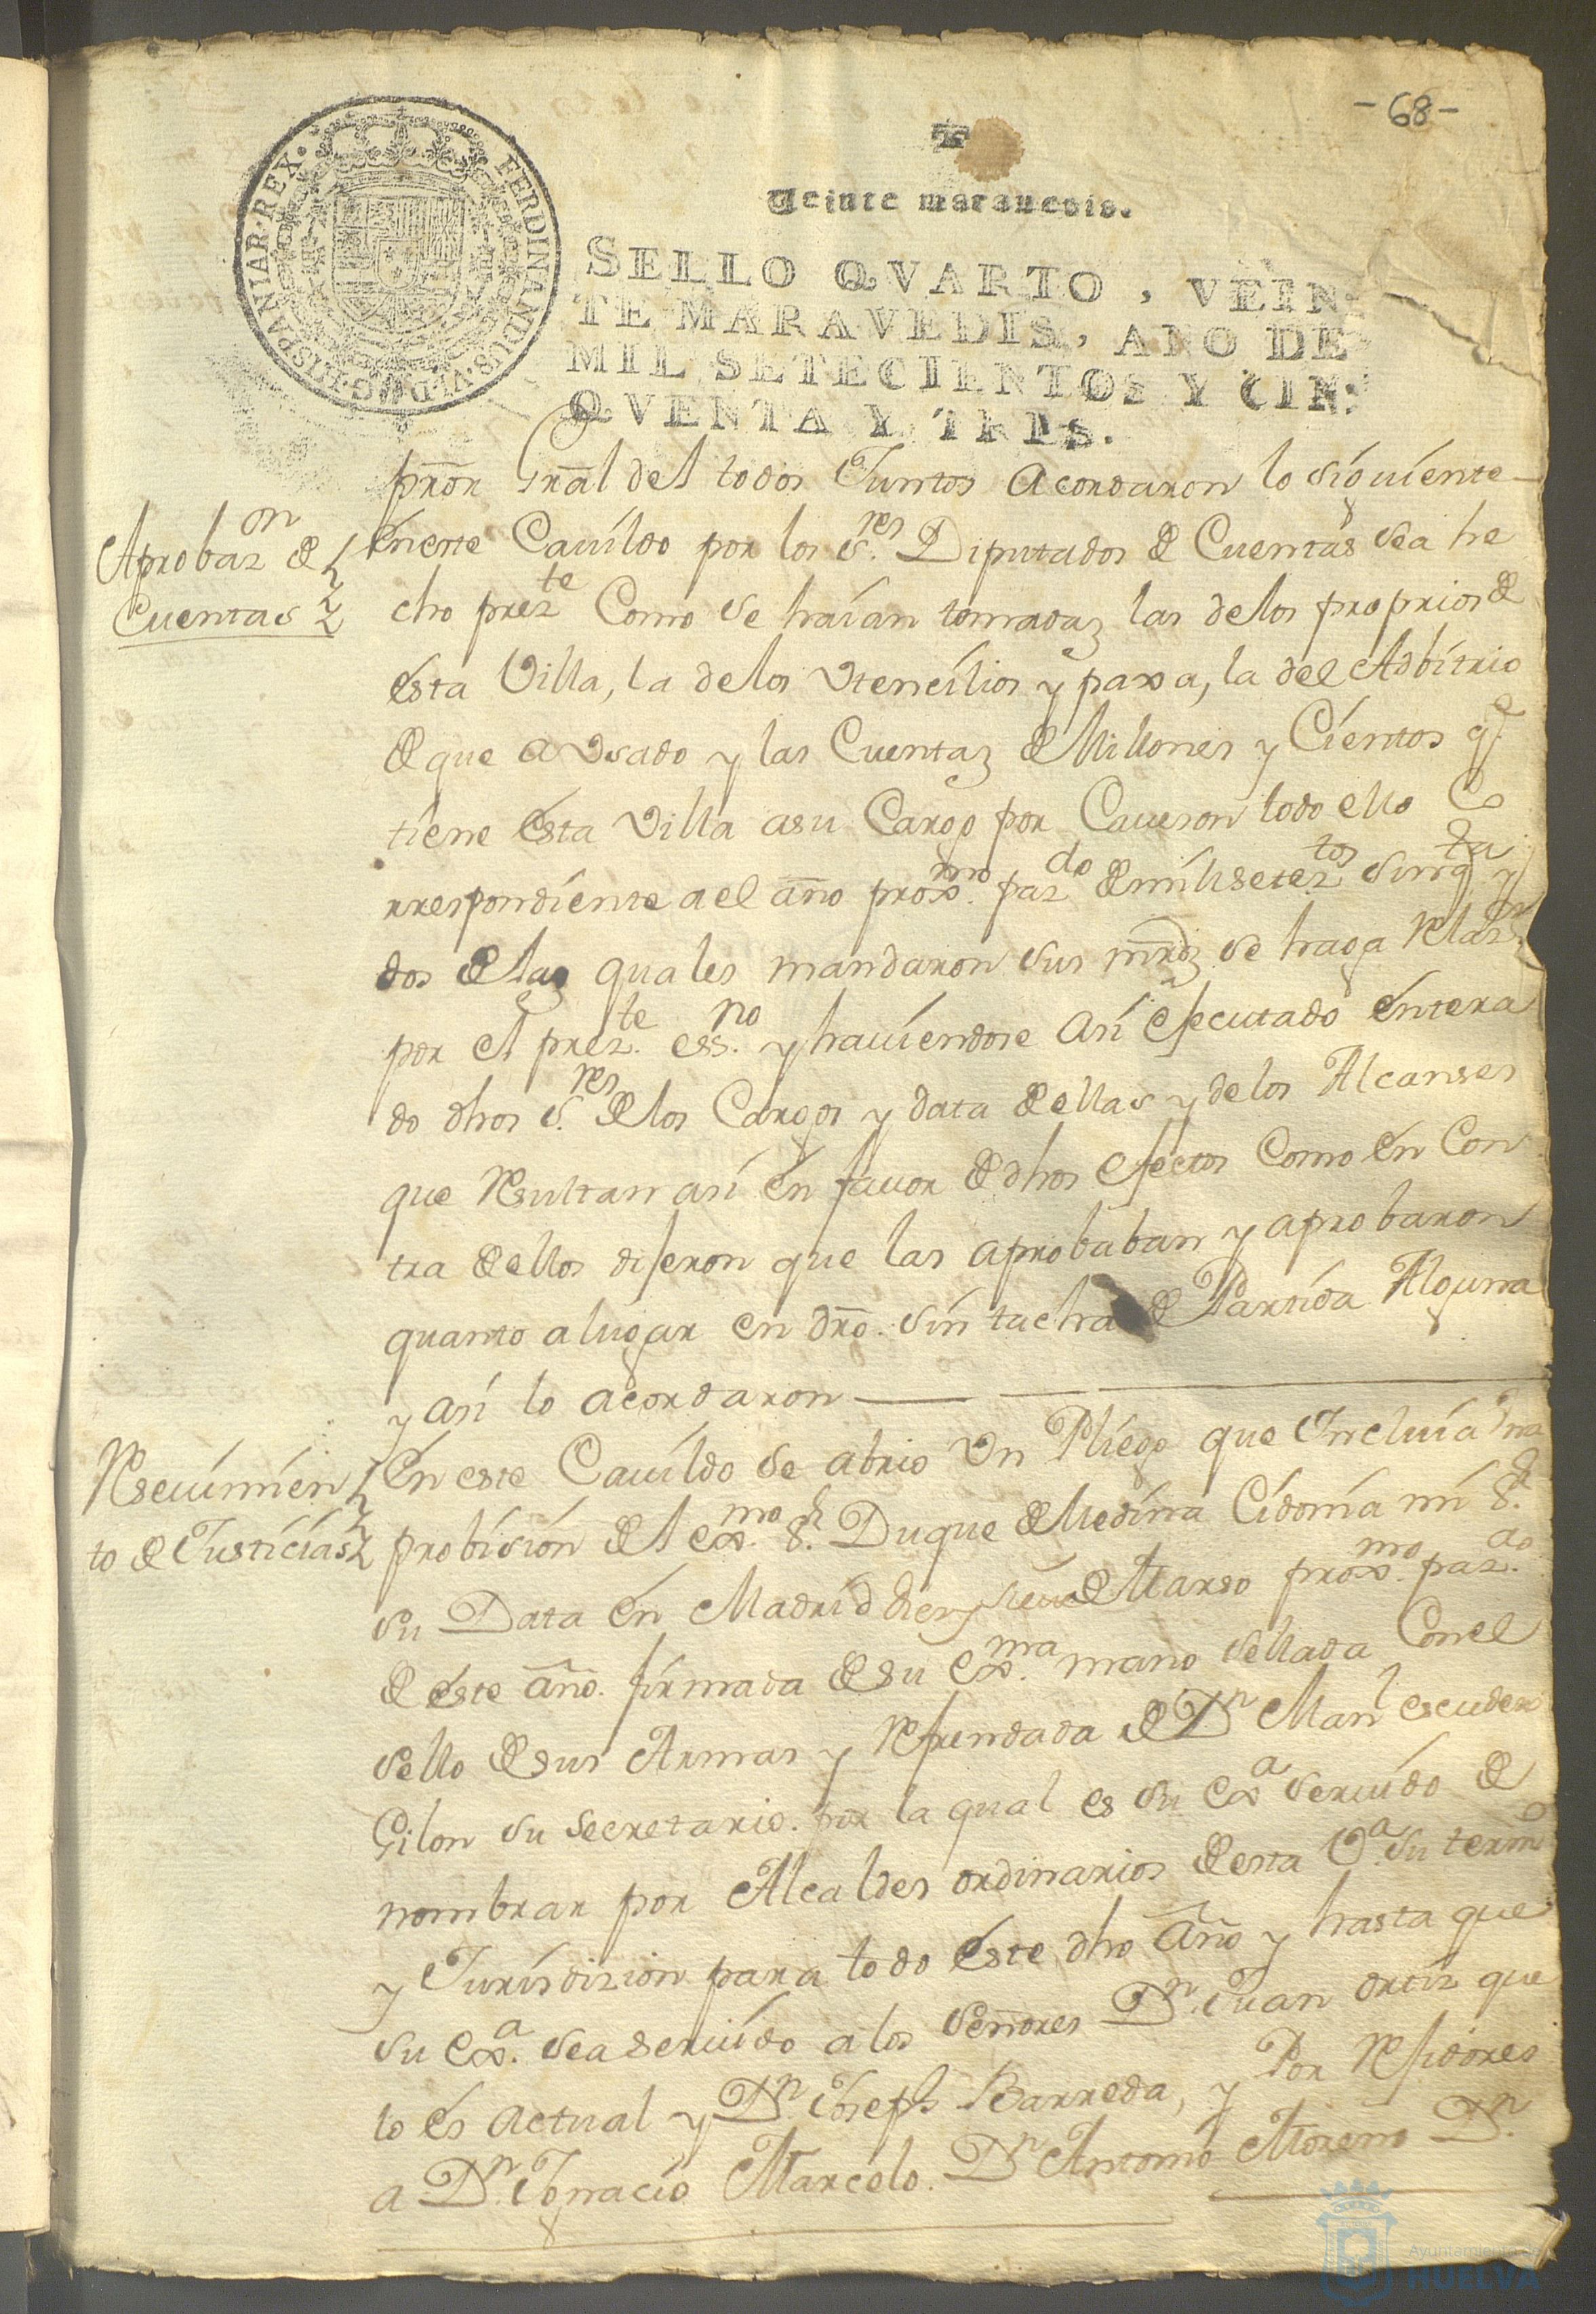 -68-
Veinte maravedis.
SELLO QVARTO, VEIN-
TE MARAVEDIS, AÑO DE
MIL SETECIENTOS Y CIN-
QVENTA Y TRES.
FERDINANDUS. VI. D. G. HISPANIAR. REX.
prōr Grāl del todos Juntos Acordaron lo siguiente
Aprobazon de
Cuentas
En este Cavildo por los Sres. Diputados de Cuentas sea he
cho prezte Como se havían tomadaz las delos proprios de
ésta Villa, la delos Utencilios y paxa, la del Adbitrio
de que a Usado y las Cuentaz de Millones y Cientos qe.
tiene ésta Villa asu Cargo por Caueson todo ello Co
rrespondiente a el año proxmo. pazdo de mil seteztos sinqta y
dos de laz quales mandaron sus mrdz se haga Relazn
por el prezte. essno. y haviendose Así ejecutado éntera
do dhos Sres. de los Cargos y data de ellas y de los Alcanses
que Resultan así én favor de dhos efectos Como én Con
tra de ellos dijeron que las aprobaban y aprobaron
quanto a lugar en dro. sin tacha de Partida Alguna
y así lo acordaron
Resevimien
to de Justicias
En este Cavildo se abrio Un Pliego que Incluía Una
probisión del exmo. Sr. Duque de Medina Cidonia mi Sr.
su Data én Madrid diez y nueve de Marso proxmo. pazdo.
de éste año. firmada de su Exma. mano sellada Con el
sello de sus Armas y Refrendada de Dn Manl escudero
Gilon su secretario. por la qual es su Exa servido de
nombrar por Alcaldes ordinarios de esta Va. su termo
y Jurisdizion para todo éste dho Año y hasta que
su Exa. sea servido a los señores Dn. Juan ortiz que
lo és actual y Dn. Joseph Barreda, y Por Rejidores
a Dn. Ignacio Marcelo. Dn Antonio Moreno Dn.
Ayuntamiento de
HUELVA